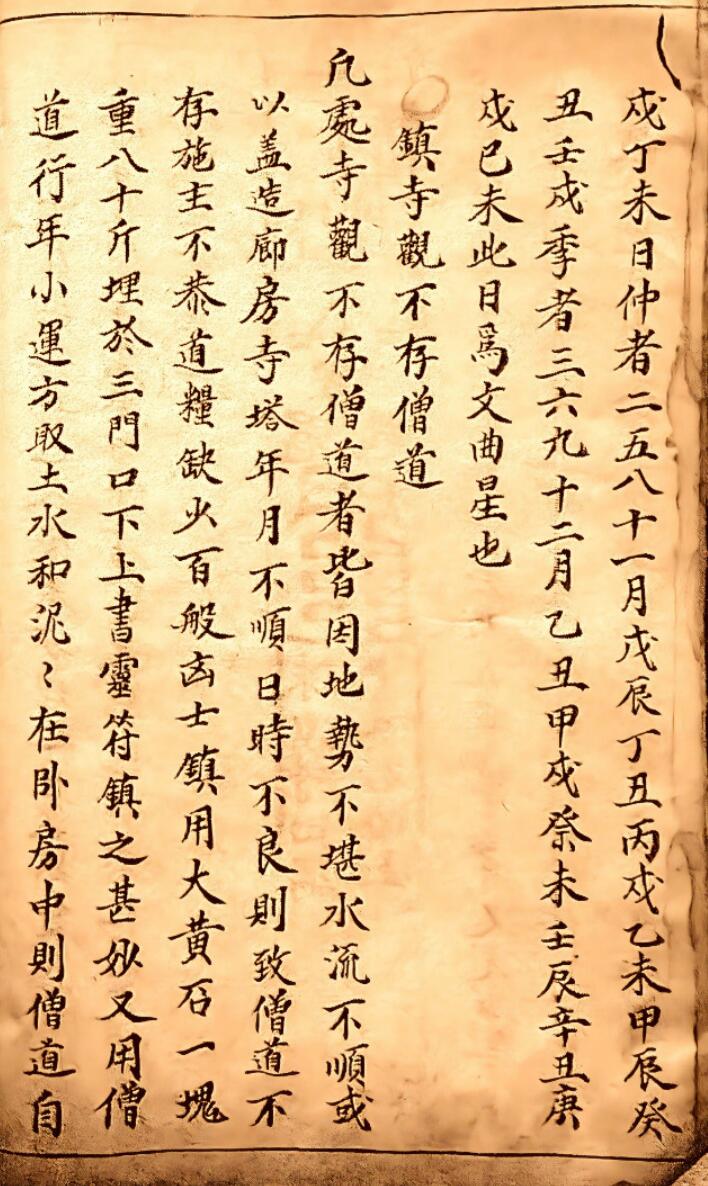 戍丁未日仲者二五八十一月戊辰丁丑丙戍乙未甲辰癸
丑壬戍季者三六九十二月乙丑甲戍癸未壬辰辛丑庚
戍巳未此日為文曲星也
鎮寺觀不存僧道
凢處寺觀不存僧道者皆因地勢不堪水流不順或
以盖造廊房寺塔年月不順日時不良則致僧道不
存施主不恭道糧缺少百般凶士鎮用大黃石一塊
重八十斤埋於三門口下上書靈符鎮之甚妙又用僧
道行年小運方取土水和泥〻在卧房中則僧道自